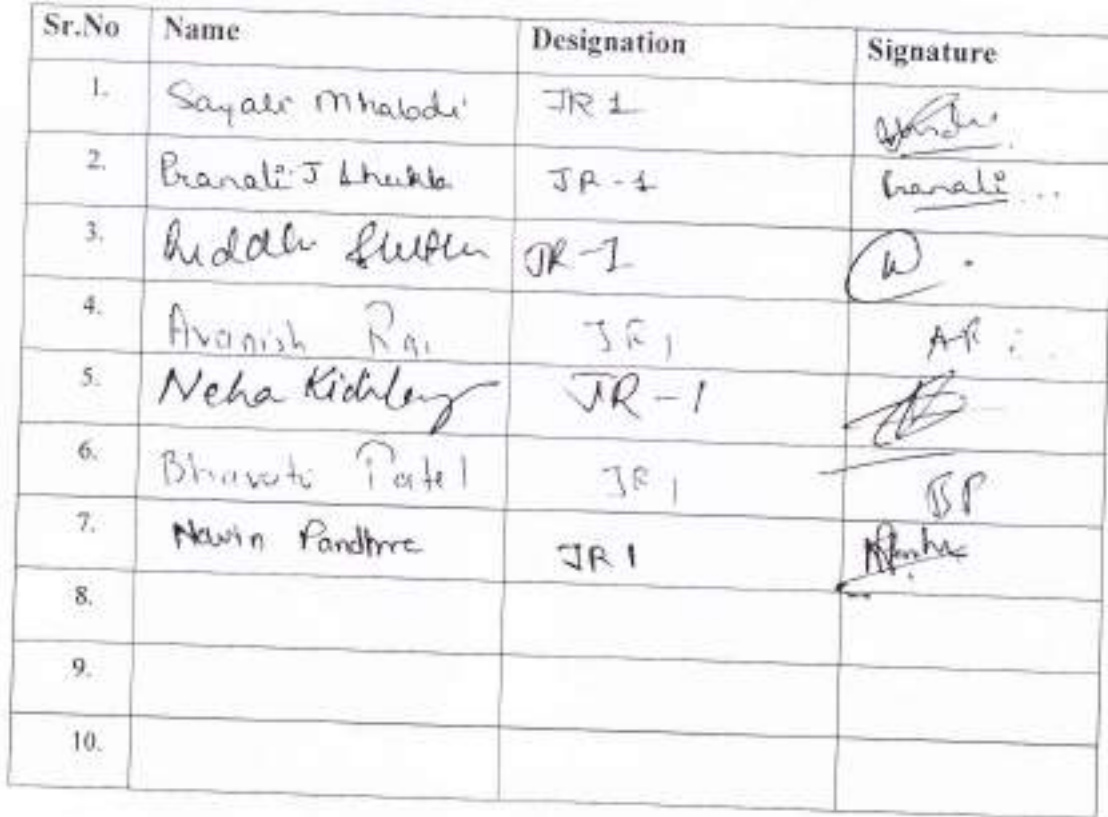 Sr.No Name Designation Signature
1. Sayali Mhabdi JR 1
2. Pranali J JR-1 Pranali ...
3. Riddhi JR-1
4. Avanish Rai JR 1 AR
5. Neha Kichley JR-1
6. Patel JR 1 BP
7. Navin Pandhre JR 1
8.
9.
10.